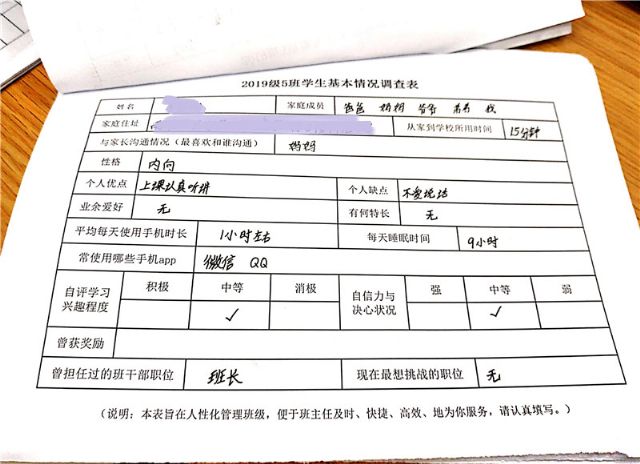 2019级5班学生基本情况调查表
姓名 家庭成员 爸爸 妈妈 爷爷 我
家庭住址 从家到学校所用时间 15分钟
与家长沟通情况（最喜欢和谁沟通） 妈妈
性格 内向
个人优点 上课认真听讲 个人缺点 不爱说话
业余爱好 无 有何特长 无
平均每天使用手机时长 1小时左右 每天睡眠时间 9小时
常使用哪些手机app 微信 QQ
自评学习兴趣程度 积极 中等 消极 自信力与决心状况 强 中等 弱
✓ ✓
曾获奖励
曾担任过的班干部职位 班长 现在最想挑战的职位 无
（说明：本表旨在人性化管理班级，便于班主任及时、快捷、高效、地为你服务，请认真填写。）